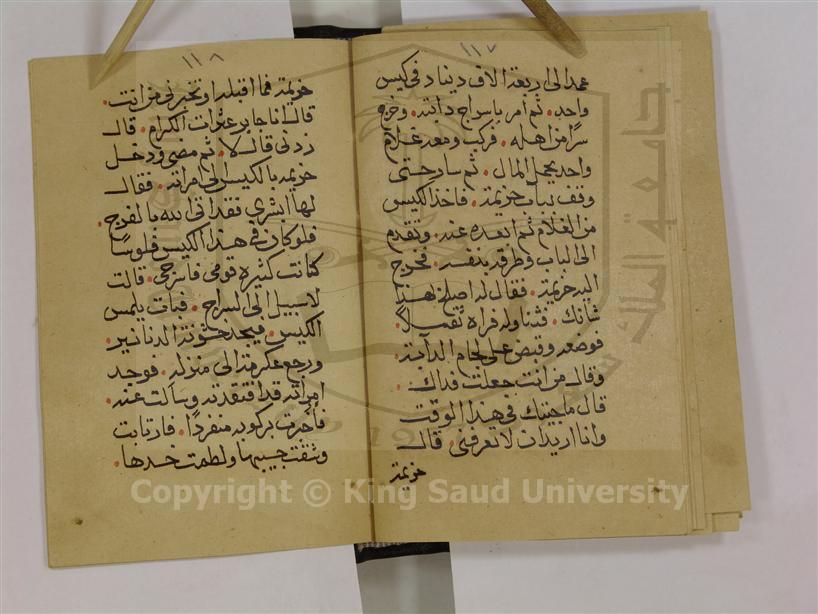 ١١٧
عمد الى اربعة الاف دينار في كيس
واحد. ثم امر باسراج دابته. وخرج
سرا من اهله. فركب ومعه غلام
واحد يحمل المال. ثم سار حتى
وقف بباب خزيمة. فاخذ الكيس
من الغلام ثم ابعده عنه. وتقدم
الى الباب وطرقه بنفسه. فخرج
اليه خزيمة. فقال له اصلح بهذا
شانك. فتناوله فراه ثقيلاً.
فوضعه وقبض على لجام الدابة
وقال من انت جعلت فداك.
قال ما جئتك في هذا الوقت
وانا اريد ان لا تعرفني. قال
خزيمة
١١٨
خزيمة فما اقبله او تخبرني من انت.
قال انا جابر عثرات الكرام. قال
زدني قال لا. ثم مضى ودخل
خزيمة بالكيس الى امراته. فقال
لها ابشري فقد اتى الله بالفرج.
فلو كان في هذا الكيس فلوسًا
كانت كثيرة قومي فاسرجي. قالت
لا سبيل الى السراج. فبات يلمس
الكيس. فيجد خشونة الدنانير.
ورجع عكرمة الى منزله. فوجد
امراته قد افتقدته وسالت عنه.
فأخبرت بركوبه منفردًا. فارتابت
وشقت جيبها ولطمت خدها.
جامعة الملك
19
Copyright © King Saud University